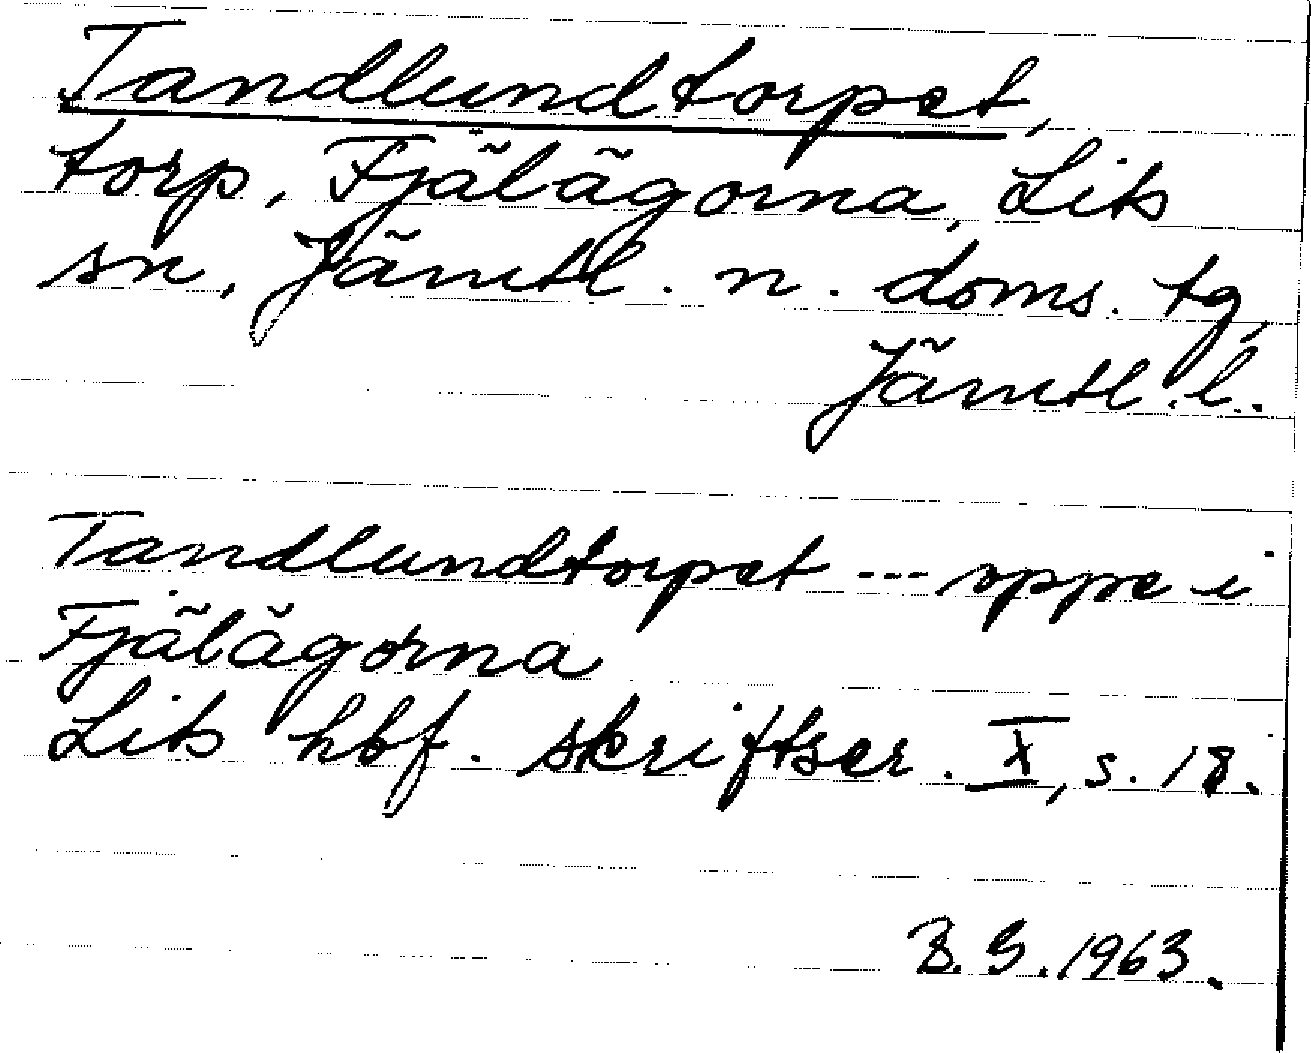 Tandlundtorpet,
torp, Fjälägorna, Lits
sn, Jämtl. n. doms. tg,
Jämtl. l.
Tandlundtorpet --- oppe i
Fjälägorna
Lits hbf. skriftser. X, s. 18.
B. G. 1963.